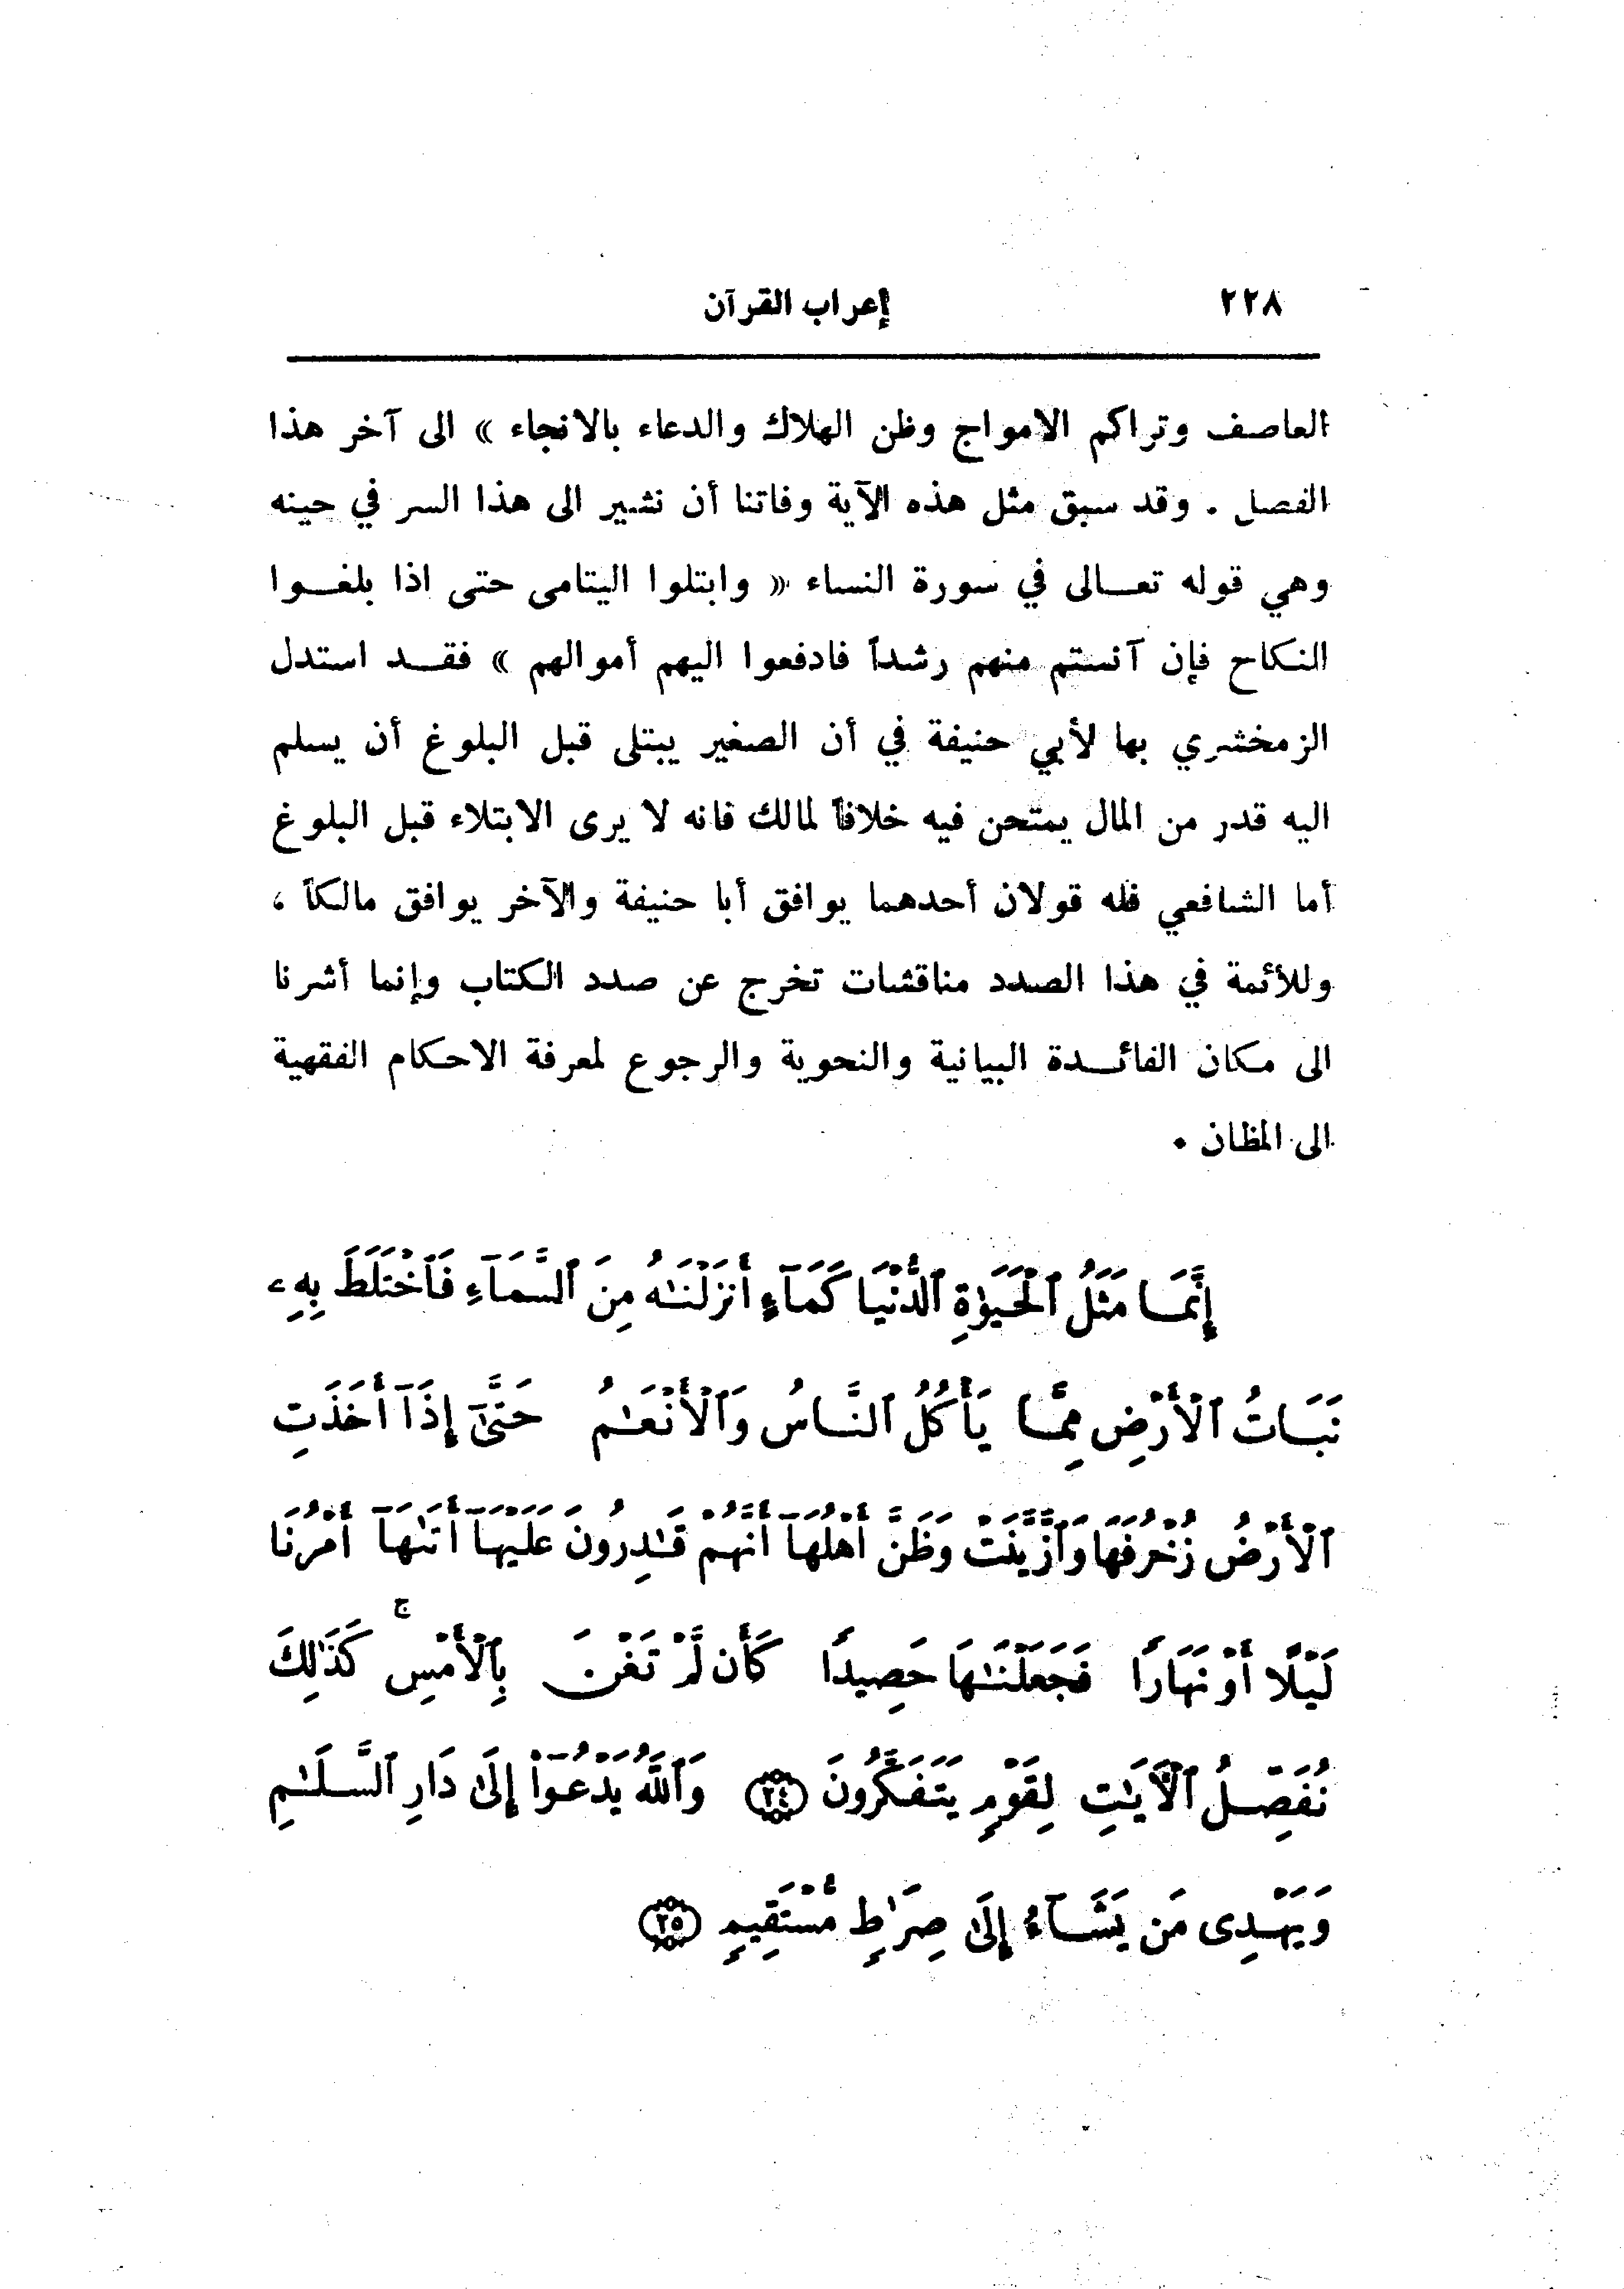 ٢٢٨ إعراب القرآن
العاصف وتراكم الامواج وظن الهلاك والدعاء بالانجاء » الى آخر هذا
الفصل . وقد سبق مثل هذه الآية وفاتنا أن نشير الى هذا السر في حينه
وهي قوله تعـالى في سورة النساء « وابتلوا اليتامى حتى اذا بلغـوا
النكاح فإن آنستم منهم رشداً فادفعوا اليهم أموالهم » فقـد استدل
الزمخشري بها لأبي حنيفة في أن الصغير يبتلى قبل البلوغ أن يسلم
اليه قدر من المال يمتحن فيه خلافاً لمالك فانه لا يرى الابتلاء قبل البلوغ
أما الشافعي فله قولان أحدهما يوافق أبا حنيفة والآخر يوافق مالكاً ،
وللأئمة في هذا الصدد مناقشات تخرج عن صدد الكتاب وإنما أشرنا
الى مكان الفائـدة البيانية والنحوية والرجوع لمعرفة الاحكام الفقهية
الى المظان .
إِنَّمَا مَثَلُ ٱلْحَيَوٰةِ ٱلدُّنْيَا كَمَآءٍ أَنزَلْنَـٰهُ مِنَ ٱلسَّمَآءِ فَٱخْتَلَطَ بِهِۦ
نَبَاتُ ٱلْأَرْضِ مِمَّا يَأْكُلُ ٱلنَّاسُ وَٱلْأَنْعَـٰمُ حَتَّىٰٓ إِذَآ أَخَذَتِ
ٱلْأَرْضُ زُخْرُفَهَا وَٱزَّيَّنَتْ وَظَنَّ أَهْلُهَآ أَنَّهُمْ قَـٰدِرُونَ عَلَيْهَآ أَتَىٰهَآ أَمْرُنَا
لَيْلًا أَوْ نَهَارًا فَجَعَلْنَـٰهَا حَصِيدًا كَأَن لَّمْ تَغْنَ بِٱلْأَمْسِ ۚ كَذَٰلِكَ
نُفَصِّلُ ٱلْآيَـٰتِ لِقَوْمٍ يَتَفَكَّرُونَ ﴿٢٤﴾ وَٱللَّهُ يَدْعُوٓا۟ إِلَىٰ دَارِ ٱلسَّلَـٰمِ
وَيَهْدِى مَن يَشَآءُ إِلَىٰ صِرَٰطٍ مُّسْتَقِيمٍ ﴿٢٥﴾